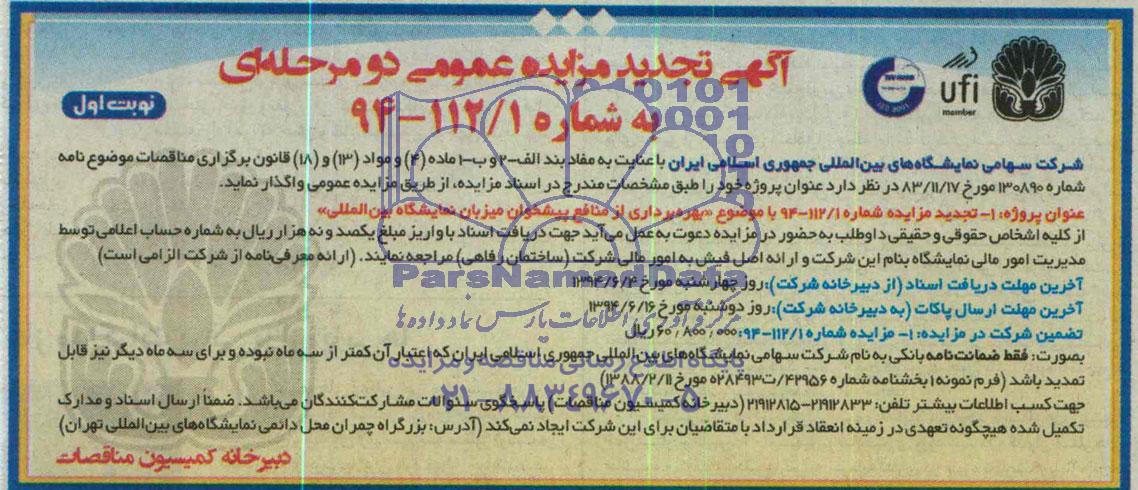 آگهی تجدید مزایده عمومی دو مرحله‌ای
به شماره ۹۴-۱۱۲/۱
نوبت اول
ufi
member
شرکت سهامی نمایشگاه‌های بین‌المللی جمهوری اسلامی ایران با عنایت به مفاد بند الف-۲ و ب-۱ ماده (۴) و مواد (۱۳) و (۱۸) قانون برگزاری مناقصات موضوع نامه
شماره ۱۳۰۸۹۰ مورخ ۸۳/۱۱/۱۷ در نظر دارد عنوان پروژه خود را طبق مشخصات مندرج در اسناد مزایده، از طریق مزایده عمومی واگذار نماید.
عنوان پروژه: ۱- تجدید مزایده شماره ۹۴-۱۱۲/۱ با موضوع «بهره‌برداری از منافع پیشخوان میزبان نمایشگاه بین‌المللی»
از کلیه اشخاص حقوقی و حقیقی داوطلب به حضور در مزایده دعوت به عمل می‌آید جهت دریافت اسناد با واریز مبلغ یکصد و نه هزار ریال به شماره حساب اعلامی توسط
مدیریت امور مالی نمایشگاه بنام این شرکت و ارائه اصل فیش به امور مالی شرکت (ساختمان رفاهی) مراجعه نمایند. (ارائه معرفی‌نامه از شرکت الزامی است)
آخرین مهلت دریافت اسناد (از دبیرخانه شرکت): روز چهارشنبه مورخ ۱۳۹۴/۶/۴
آخرین مهلت ارسال پاکات (به دبیرخانه شرکت): روز دوشنبه مورخ ۱۳۹۴/۶/۱۶
تضمین شرکت در مزایده: ۱- مزایده شماره ۹۴-۱۱۲/۱: ۶۰,۸۰۰,۰۰۰ ریال
بصورت: فقط ضمانت‌نامه بانکی به نام شرکت سهامی نمایشگاه‌های بین‌المللی جمهوری اسلامی ایران که اعتبار آن کمتر از سه ماه نبوده و برای سه ماه دیگر نیز قابل
تمدید باشد (فرم نمونه ۱ بخشنامه شماره ۴۲۹۵۶/ت۲۸۴۹۳ه مورخ ۱۳۸۸/۲/۱۱)
جهت کسب اطلاعات بیشتر تلفن: ۲۱۹۱۲۸۳۳-۲۱۹۱۲۸۱۵ (دبیرخانه کمیسیون مناقصات) پاسخگوی سئوالات مشارکت‌کنندگان می‌باشد. ضمناً ارسال اسناد و مدارک
تکمیل شده هیچگونه تعهدی در زمینه انعقاد قرارداد با متقاضیان برای این شرکت ایجاد نمی‌کند (آدرس: بزرگراه چمران محل دائمی نمایشگاه‌های بین‌المللی تهران)
دبیرخانه کمیسیون مناقصات
ParsNamadData
مرکز فرآوری اطلاعات پارس نماد داده‌ها
پایگاه اطلاع رسانی مناقصه و مزایده
۰۲۱-۸۸۳۴۹۶۷۰-۵